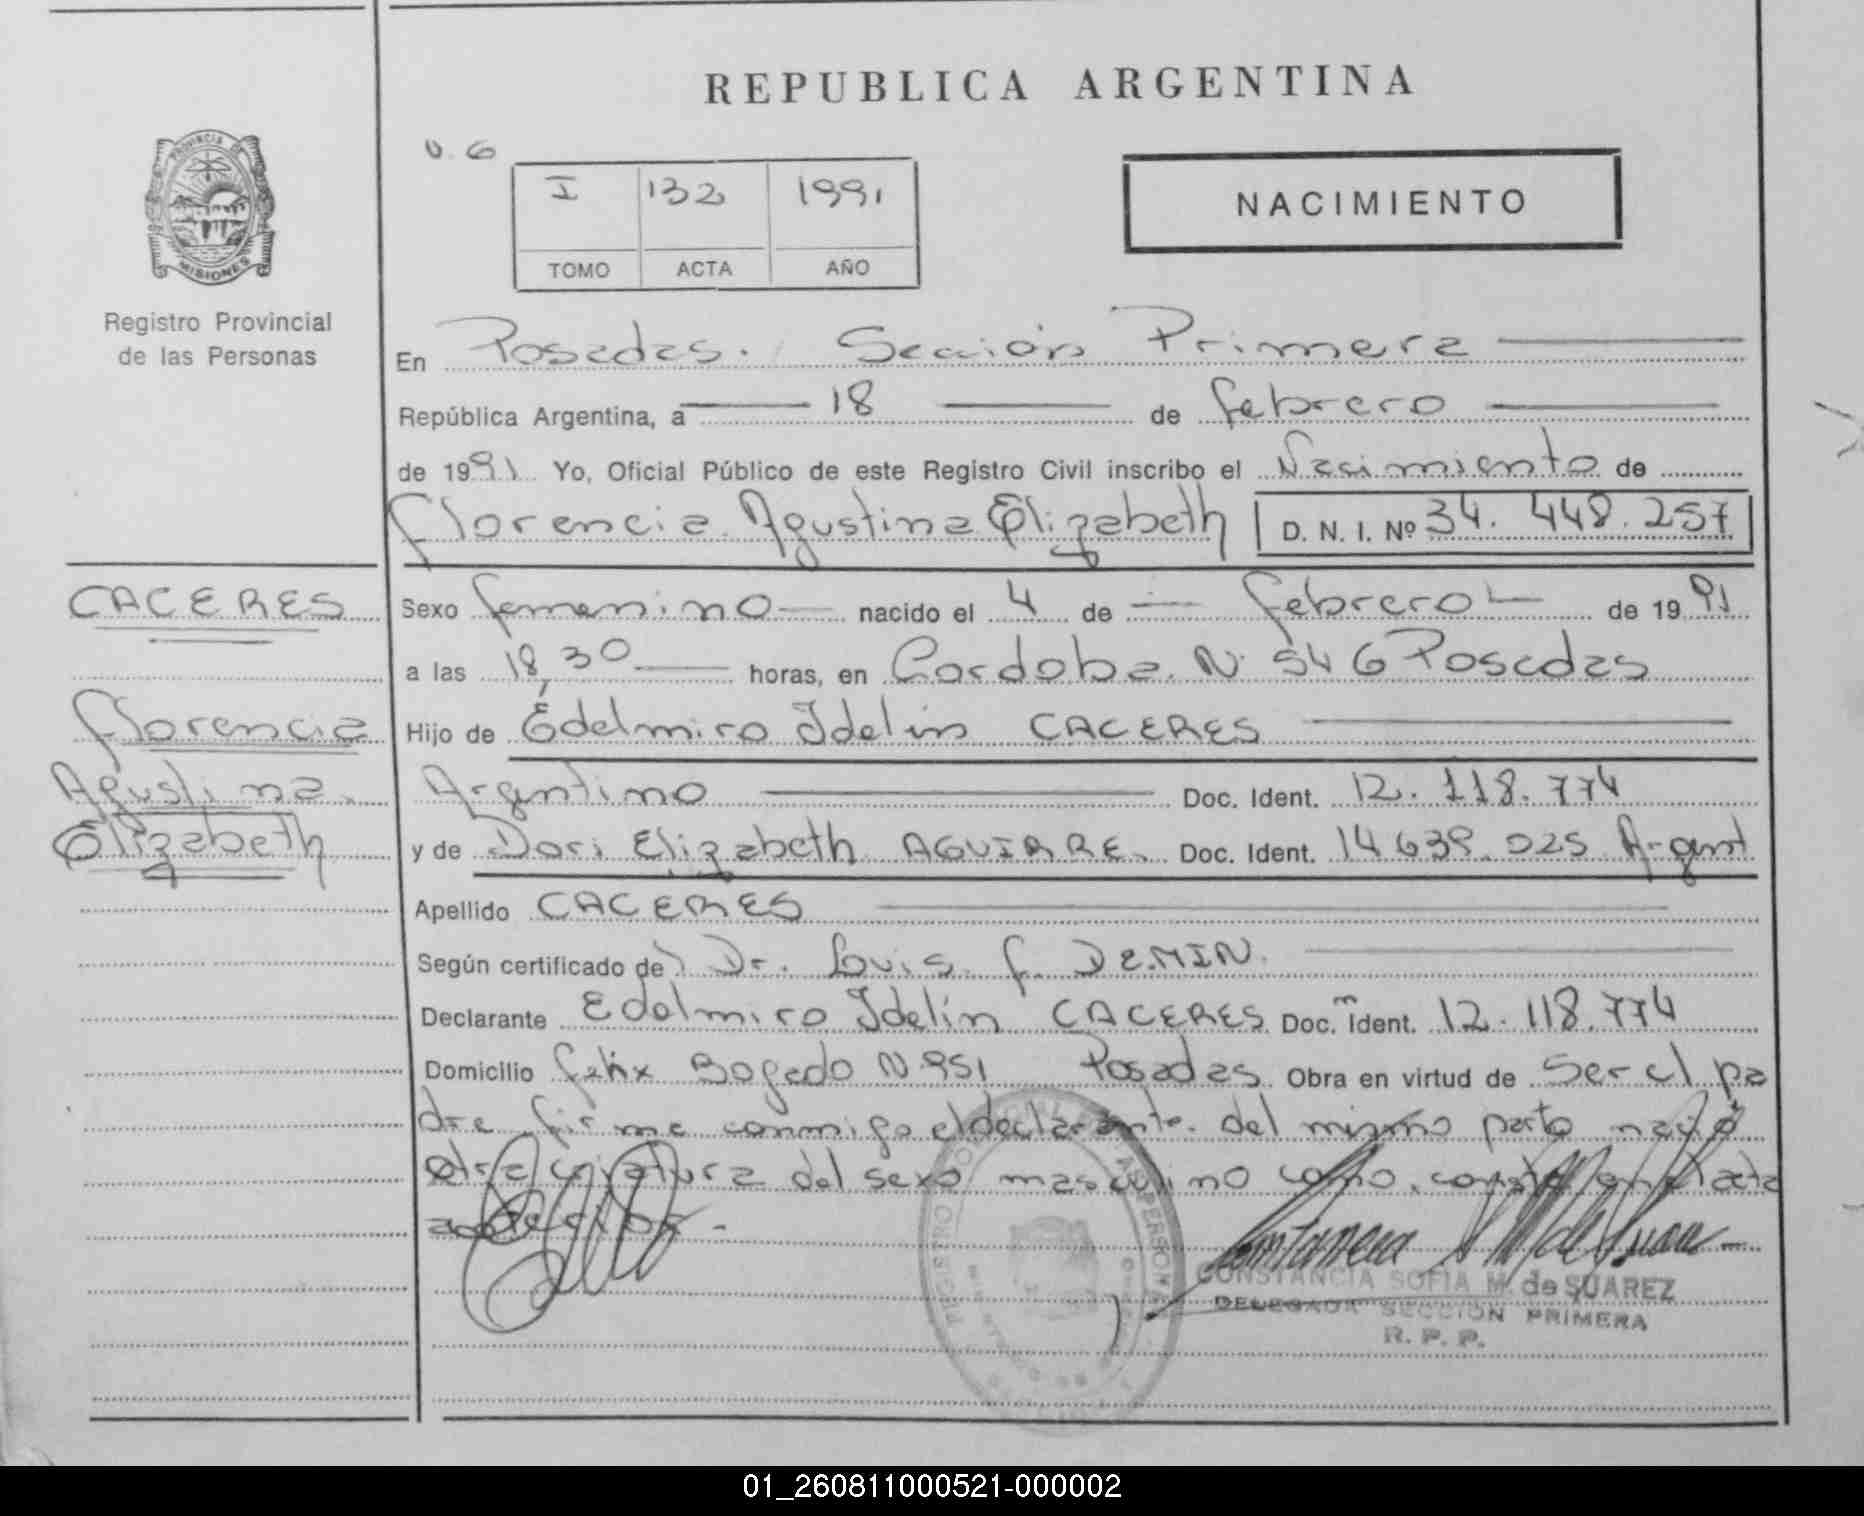 REPUBLICA ARGENTINA
PROVINCIA DE
MISIONES
Registro Provincial
de las Personas
V. G
I 132 1991
TOMO ACTA AÑO
NACIMIENTO
En Posadas. Sección Primera
República Argentina, a 18 de febrero
de 1991 Yo, Oficial Público de este Registro Civil inscribo el Nacimiento de
Florencia Agustina Elizabeth D. N. I. Nº 34. 448. 257
CACERES
Florencia
Agustina
Elizabeth
Sexo femenino nacido el 4 de febrero de 1991
a las 18,30 horas, en Cordoba N. 546 Posadas
Hijo de Edelmiro Idelin CACERES
Argentino Doc. Ident. 12. 118. 774
y de Dori Elizabeth AGUIRRE. Doc. Ident. 14 639. 025 Argent
Apellido CACERES
Según certificado de Dr. Louis f.
Declarante Edelmiro Idelín CACERES Doc. Ident. 12. 118. 774
Domicilio felix Bogado N. 951 Posadas Obra en virtud de Ser el pa
dre firma conmigo el declarante. del mismo parto nació
otra criatura del sexo masculino como consta en el acta
CONSTANCIA SOFIA M. de SUAREZ
DELEGADA SECCION PRIMERA
R. P. P.
01_260811000521-000002